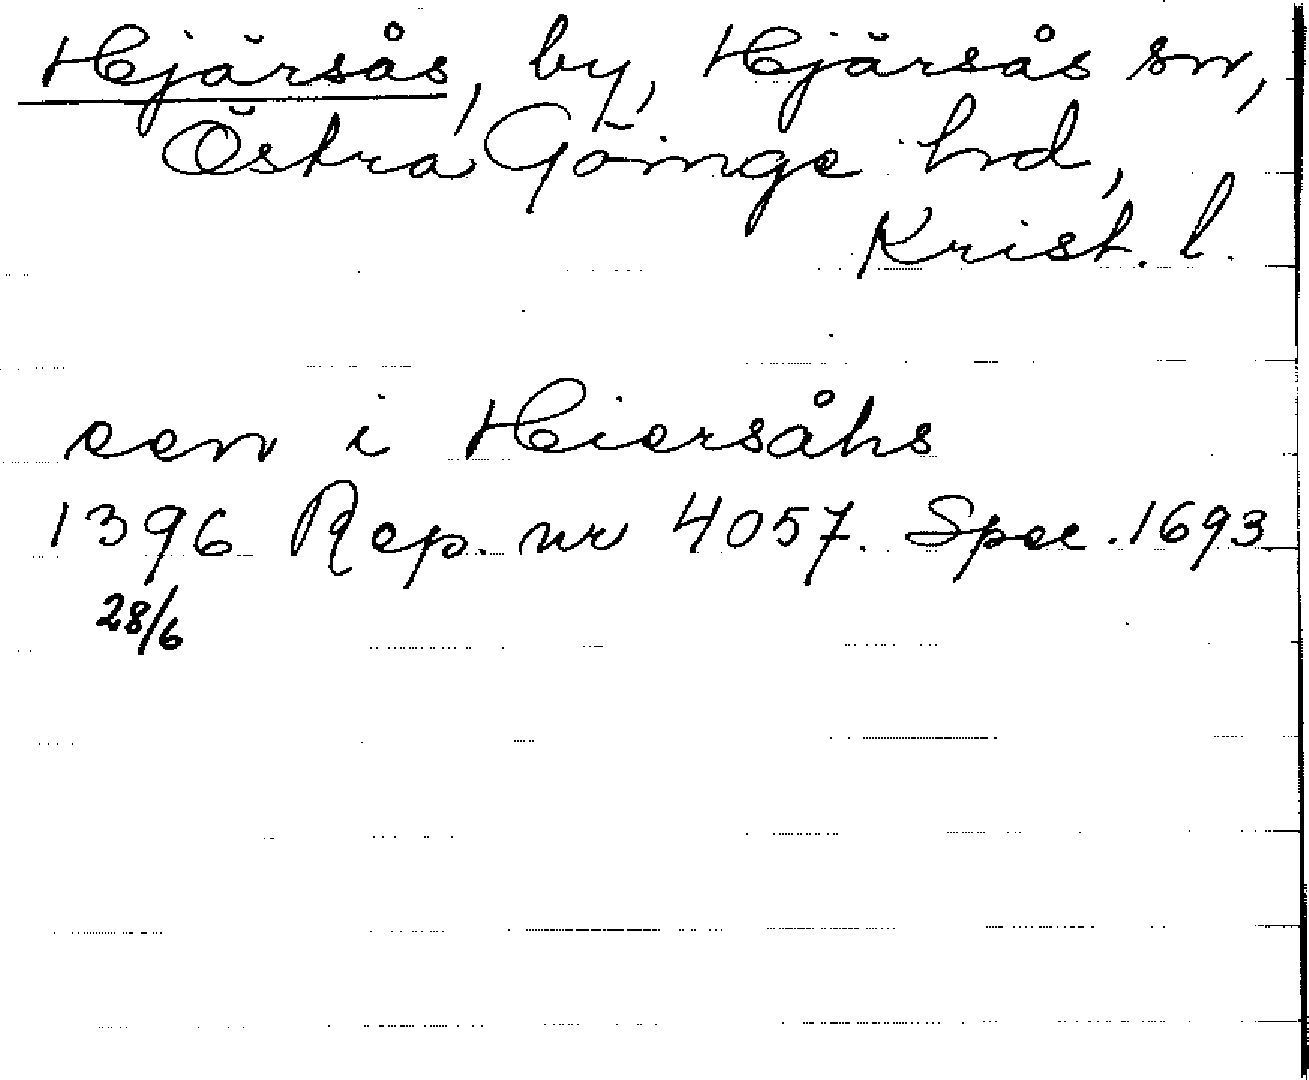 Hjärsås, by, Hjärsås sn,
Östra Göinge hd,
Krist. l.
een i Hiersåhs
1396 Rep. nr 4057. Spec. 1693
28/6